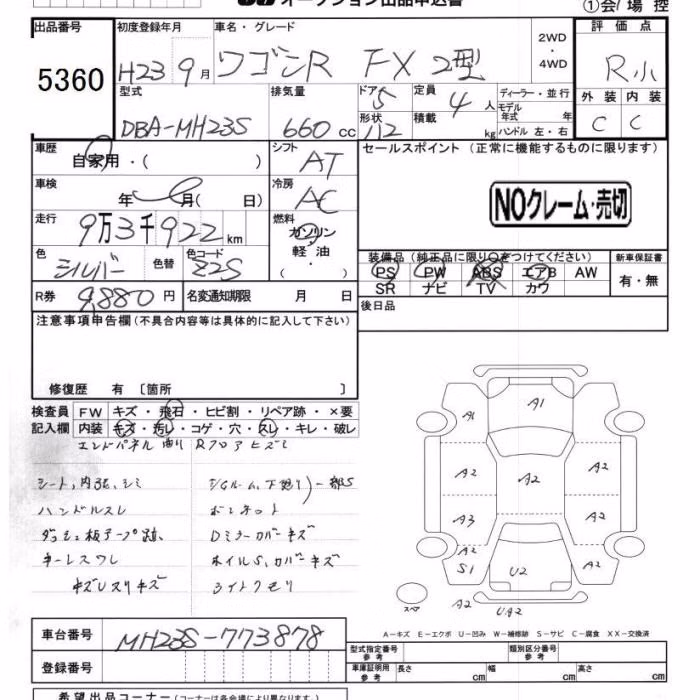 オークション出品申込書
①会場控
出品番号 初度登録年月 車名・グレード 評価点
5360 H23 9月 ワゴンR FX 2型 2WD・4WD R小
型式 排気量 ドア 5 定員 4人 ディーラー・並行 外装 内装
DBA-MH23S 660cc 形状 積載 kg モデル年式 年 C C
ハンドル 左・右
車歴 シフト セールスポイント(正常に機能するものに限ります)
自家用・( ) AT
車検 冷房 NOクレーム・売切
年 月( 日) AC
走行 燃料
9万3千922km ガソリン
軽油・( )
色 シルバー 色替 色コード Z2S
装備品(純正品に限り○をつけてください) 新車保証書
PS PW ABS エアB AW 有・無
SR ナビ TV カワ
R券 9,880円 名変通知期限 月 日 後日品
注意事項申告欄(不具合内容等は具体的に記入して下さい)
修復歴 有 [箇所 ]
検査員 FW キズ・飛石・ヒビ割・リペア跡・×要
記入欄 内装 キズ・汚レ・コゲ・穴・スレ・キレ・破レ
エンドパネル 曲り Rフロアヒズミ
シート,内張,シミ
ハンドルスレ ボンネット
Dミラーカバーキズ
キーレスワレ ホイルS,カバーキズ
ライトクモリ
A1
A1
A2 A2 A2
A3 A2
A2
S1 U2
スペア A2 UA2
A―キズ E―エクボ U―凹み W―補修跡 S―サビ C―腐食 XX―交換済
車台番号 MH23S-773878
登録番号
型式指定番号 参考 類別区分番号 参考
車庫証明用 参考 長さ cm 幅 cm 高さ cm
希望出品コーナー(コーナーは各会場により異なります。)